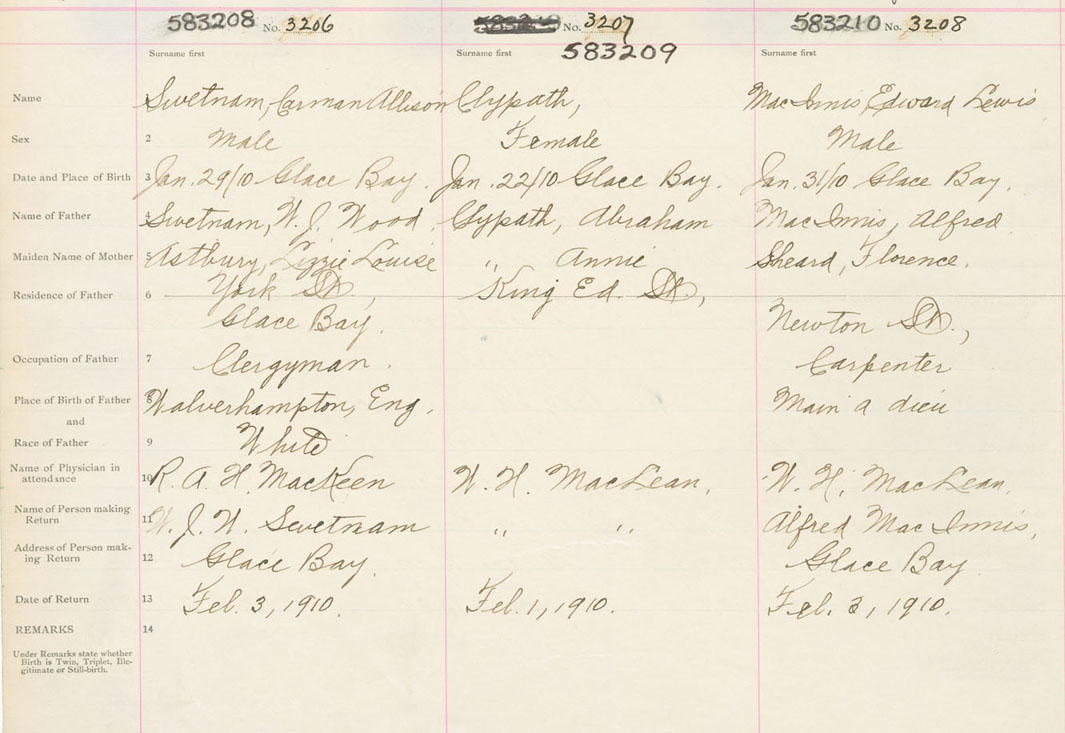 583208 No. 3206 No. 3207 583210 No. 3208
583209
Surname first Surname first Surname first
Name 1 Swetnam, Carman Allison Clypath, MacInnis, Edward Lewis
Sex 2 Male Female Male
Date and Place of Birth 3 Jan. 29/10 Glace Bay. Jan. 22/10 Glace Bay. Jan. 31/10 Glace Bay.
Name of Father 4 Swetnam, W. J. Wood. Clypath, Abraham MacInnis, Alfred
Maiden Name of Mother 5 Astbury, Lizzie Louise " Annie Sheard, Florence.
Residence of Father 6 York St., King Ed. St.,
Glace Bay. Newton St.,
Occupation of Father 7 Clergyman. Carpenter
Place of Birth of Father 8 Walverhampton, Eng. Main a dieu
and
Race of Father 9 White
Name of Physician in
attendance 10 R. A. H. MacKeen W. H. MacLean. W. H. MacLean.
Name of Person making
Return 11 W. J. W. Swetnam " " Alfred MacInnis,
Address of Person mak-
ing Return 12 Glace Bay. Glace Bay
Date of Return 13 Feb. 3, 1910. Feb. 1, 1910. Feb. 2, 1910.
REMARKS 14
Under Remarks state whether
Birth is Twin, Triplet, Ille-
gitimate or Still-birth.